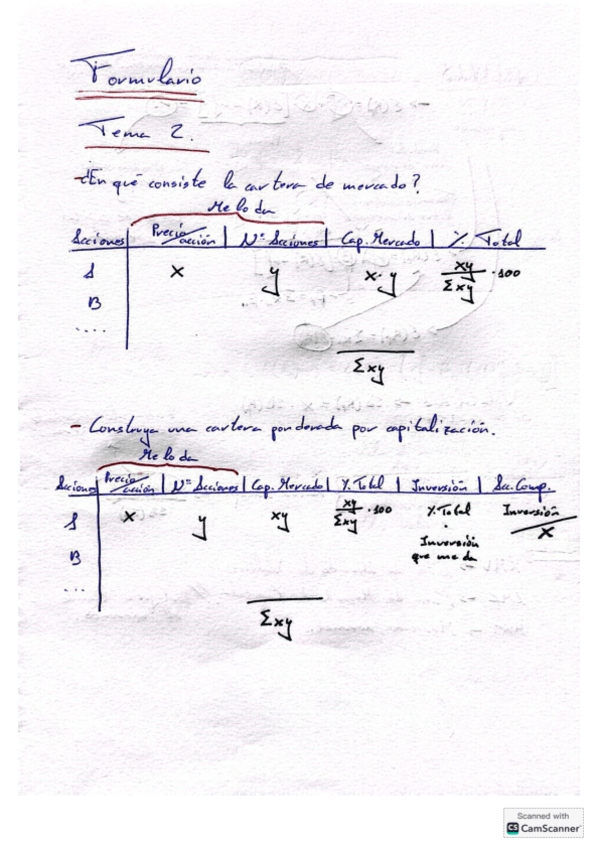 Formulario
Tema 2.
-¿En qué consiste la cartera de mercado?
Me lo dan
Acciones | Precio/acción | Nº Acciones | Cap. Mercado | % Total
A x y x·y xy/Σxy ·100
B
....
Σxy
- Construya una cartera ponderada por capitalización.
Me lo da
Acciones | Precio/acción | Nº Acciones | Cap. Mercado | % Total | Inversión | Acc. Comp.
A x y xy xy/Σxy ·100 % Total · Inversión que me da Inversión/x
B
...
Σxy
Scanned with
CS CamScanner